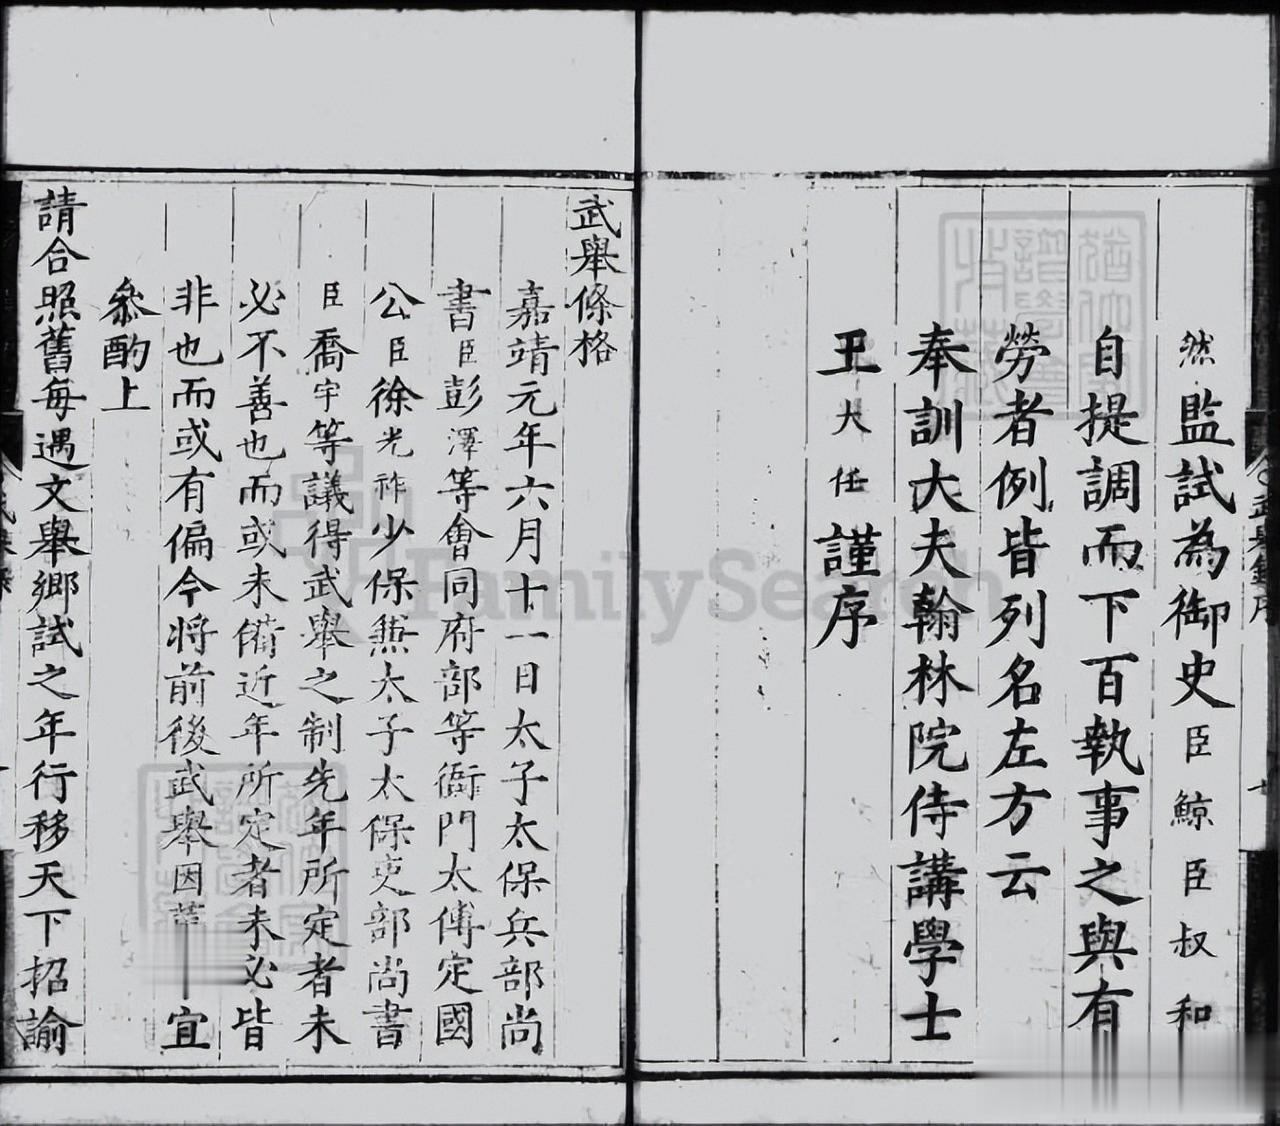 然監試為御史臣鯨臣叔和
自提調而下百執事之與有
勞者例皆列名左方云
奉訓大夫翰林院侍講學士
王大任謹序
武舉條格
嘉靖元年六月十一日太子太保兵部尚
書臣彭澤等會同府部等衙門太傅定國
公臣徐光祚少保兼太子太保吏部尚書
臣喬宇等議得武舉之制先年所定者未
必不善也而或未備近年所定者未必皆
非也而或有偏今將前後武舉因革宜
叅酌上
請合照舊每遇文舉鄉試之年行移天下招諭
FamilySearch